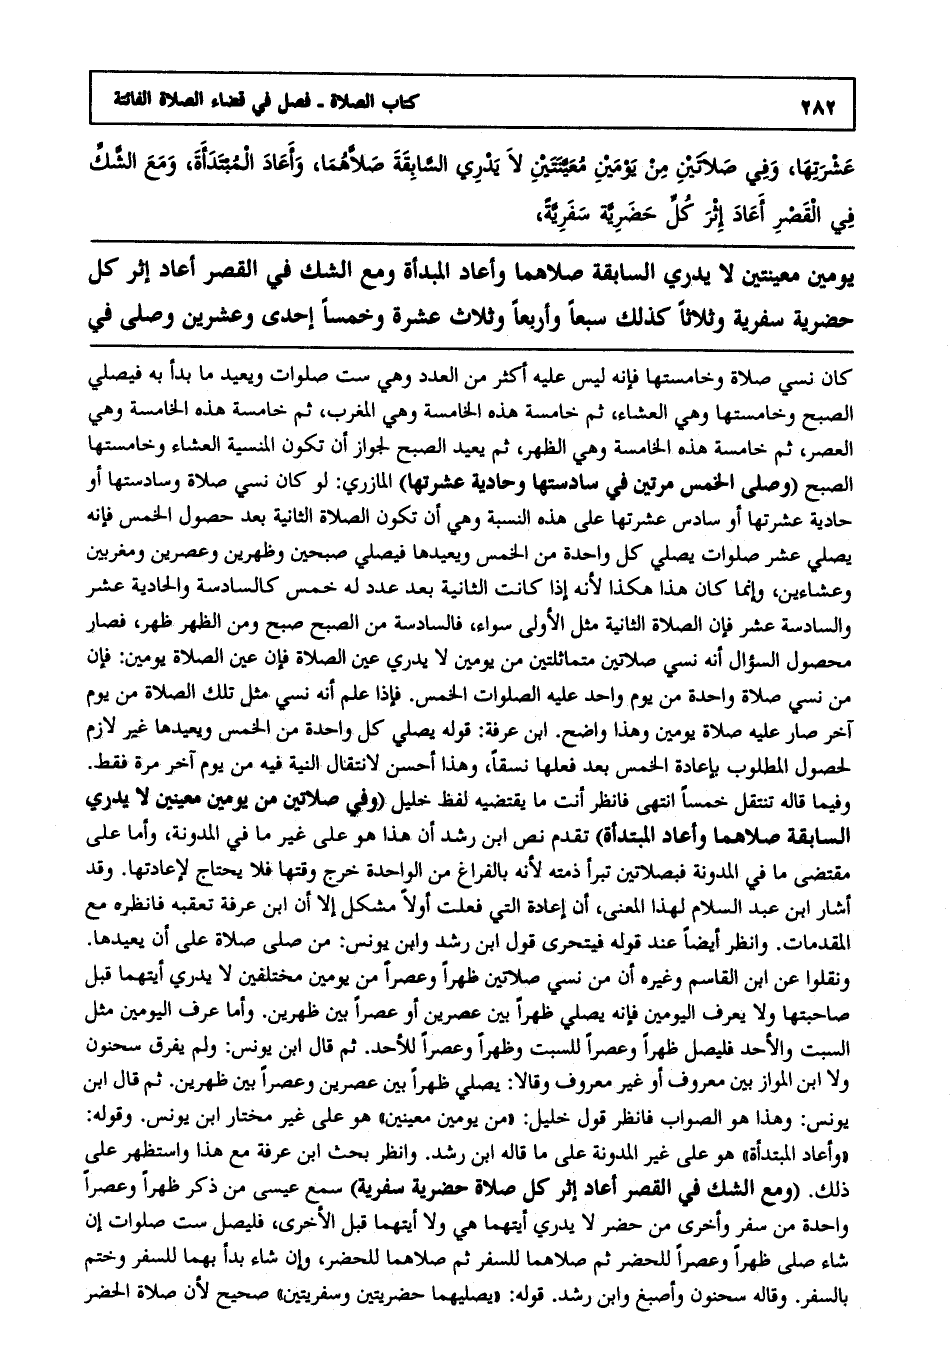 ٢٨٢ كتاب الصلاة ـ فصل في قضاء الصلاة الفائتة
عَشْرَتِهَا، وَفِي صَلاَتَيْنِ مِنْ يَوْمَيْنِ مُعَيَّنَتَيْنِ لاَ يَدْرِي السَّابِقَةَ صَلاَّهُمَا، وَأَعَادَ الْمُبْتَدَأَةَ، وَمَعَ الشَّكِّ
فِي الْقَصْرِ أَعَادَ إِثْرَ كُلِّ حَضَرِيَّة سَفَرِيَّةً،
يومين معينتين لا يدري السابقة صلاهما وأعاد المبدأة ومع الشك في القصر أعاد إثر كل
حضرية سفرية وثلاثاً كذلك سبعاً وأربعاً وثلاث عشرة وخمساً إحدى وعشرين وصلى في
كان نسي صلاة وخامستها فإنه ليس عليه أكثر من العدد وهي ست صلوات ويعيد ما بدأ به فيصلي
الصبح وخامستها وهي العشاء، ثم خامسة هذه الخامسة وهي المغرب، ثم خامسة هذه الخامسة وهي
العصر، ثم خامسة هذه الخامسة وهي الظهر، ثم يعيد الصبح لجواز أن تكون المنسية العشاء وخامستها
الصبح (وصلى الخمس مرتين في سادستها وحادية عشرتها) المازري: لو كان نسي صلاة وسادستها أو
حادية عشرتها أو سادس عشرتها على هذه النسبة وهي أن تكون الصلاة الثانية بعد حصول الخمس فإنه
يصلي عشر صلوات يصلي كل واحدة من الخمس ويعيدها فيصلي صبحين وظهرين وعصرين ومغربين
وعشاءين، وإنما كان هذا هكذا لأنه إذا كانت الثانية بعد عدد له خمس كالسادسة والحادية عشر
والسادسة عشر فإن الصلاة الثانية مثل الأولى سواء، فالسادسة من الصبح صبح ومن الظهر ظهر، فصار
محصول السؤال أنه نسي صلاتين متماثلتين من يومين لا يدري عين الصلاة فإن عين الصلاة يومين: فإن
من نسي صلاة واحدة من يوم واحد عليه الصلوات الخمس. فإذا علم أنه نسي مثل تلك الصلاة من يوم
آخر صار عليه صلاة يومين وهذا واضح. ابن عرفة: قوله يصلي كل واحدة من الخمس ويعيدها غير لازم
لحصول المطلوب بإعادة الخمس بعد فعلها نسقاً، وهذا أحسن لانتقال النية فيه من يوم آخر مرة فقط.
وفيما قاله تنتقل خمساً انتهى فانظر أنت ما يقتضيه لفظ خليل (وفي صلاتين من يومين معينين لا يدري
السابقة صلاهما وأعاد المبتدأة) تقدم نص ابن رشد أن هذا هو على غير ما في المدونة، وأما على
مقتضى ما في المدونة فبصلاتين تبرأ ذمته لأنه بالفراغ من الواحدة خرج وقتها فلا يحتاج لإعادتها. وقد
أشار ابن عبد السلام لهذا المعنى، أن إعادة التي فعلت أولاً مشكل إلا أن ابن عرفة تعقبه فانظره مع
المقدمات. وانظر أيضاً عند قوله فيتحرى قول ابن رشد وابن يونس: من صلى صلاة على أن يعيدها.
ونقلوا عن ابن القاسم وغيره أن من نسي صلاتين ظهراً وعصراً من يومين مختلفين لا يدري أيتهما قبل
صاحبتها ولا يعرف اليومين فإنه يصلي ظهراً بين عصرين أو عصراً بين ظهرين. وأما عرف اليومين مثل
السبت والأحد فليصل ظهراً وعصراً للسبت وظهراً وعصراً للأحد. ثم قال ابن يونس: ولم يفرق سحنون
ولا ابن المواز بين معروف أو غير معروف وقالا: يصلي ظهراً بين عصرين وعصراً بين ظهرين. ثم قال ابن
يونس: وهذا هو الصواب فانظر قول خليل: «من يومين معينين» هو على غير مختار ابن يونس. وقوله:
«وأعاد المبتدأة» هو على غير المدونة على ما قاله ابن رشد. وانظر بحث ابن عرفة مع هذا واستظهر على
ذلك. (ومع الشك في القصر أعاد إثر كل صلاة حضرية سفرية) سمع عيسى من ذكر ظهراً وعصراً
واحدة من سفر وأخرى من حضر لا يدري أيتهما هي ولا أيتهما قبل الأخرى، فليصل ست صلوات إن
شاء صلى ظهراً وعصراً للحضر ثم صلاهما للسفر ثم صلاهما للحضر، وإن شاء بدأ بهما للسفر وختم
بالسفر. وقاله سحنون وأصبغ وابن رشد. قوله: «يصليهما حضريتين وسفريتين» صحيح لأن صلاة الحضر